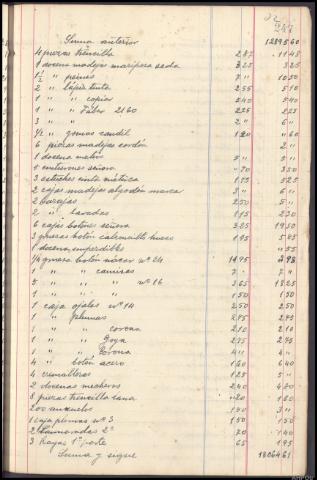 247
Suma anterior 1289560
4 piezas trencilla 287 1148
1 docena madejas mariposa seda 325 325
1½ " peines 7" 1050
2 " lápiz tinta 255 510
1 " " copiar 240 240
1 " " Faber 2160 225 225
3 " " 2" 6"
½ " gomas candil 120 "60
6 piezas madejas cordón 2"
1 docena 5" 5"
5 señora "70 350
3 estuches 175 525
2 cajas madejas algodón marca 3" 6"
2 barajas 250 5"
2 " 115 230
6 cajas botones señora 325 1950
3 gruesas botón calzoncillo hueso 195 585
1 docena imperdibles "55
¼ gruesa botón nácar nº 24 1195 298
1 " " camisas 7" 7"
5 " " " nº 16 365 1825
1 " " " 150 150
1 caja ojales nº 14 250 250
1 " plumas 295 295
1 " " corona 210 210
1 " " Goya 295 295
1 " " Corona 4" 4"
4 " botón acero 160 640
4 cremalleras 125 5"
2 docenas mecheros 240 480
2 piezas trencilla lana 1"
200 anzuelos 150 3"
1 caja plumas nº 3 150 150
2 2ª 70 140
3 65 195
Suma y sigue 1306461